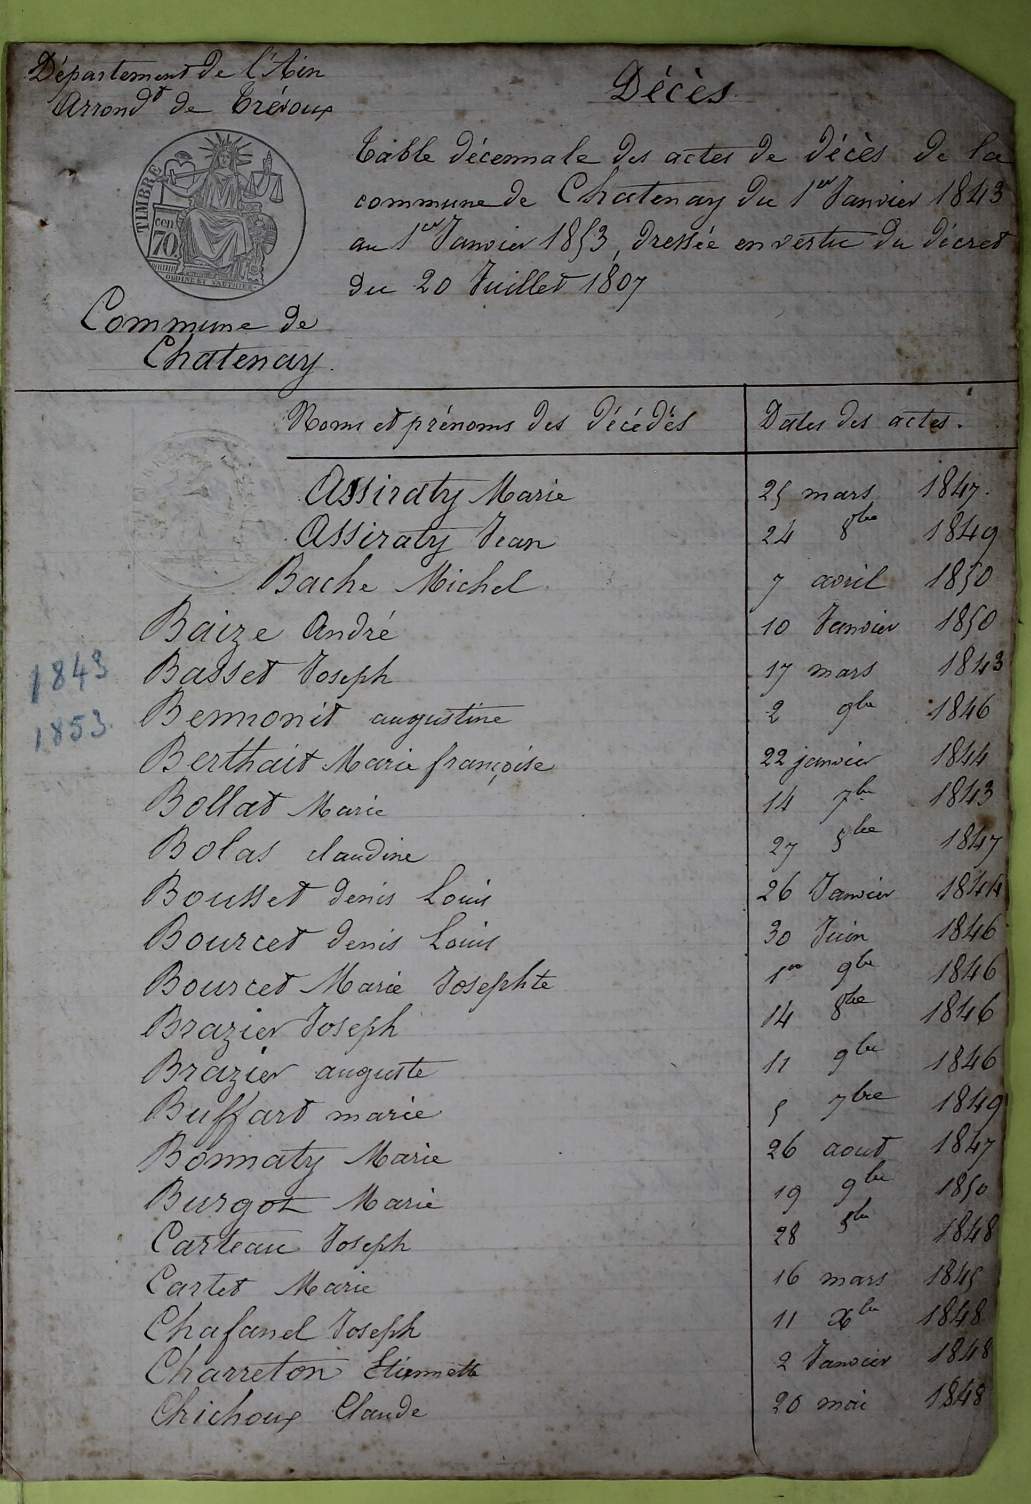 Département de l'Ain
Arrondt de Trévoux
Décès
TIMBRE
70
Table décennale des actes de décès de la
commune de Chatenay du 1er Janvier 1843
au 1er Janvier 1853, dressée en vertu du décret
du 20 Juillet 1807
Commune de
Chatenay.
Noms et prénoms des décédés Dates des actes.
Assiraty Marie 25 mars 1847.
Assiraty Jean 24 8bre 1849
Bache Michel 7 avril 1850
Baize André 10 Janvier 1850
1843
Basset Joseph 17 mars 1843
1853
Bennonit augustine 2 9bre 1846
Berthait Marie françoise 22 janvier 1844
Bollat Marie 14 7bre 1843
Bolas claudine 27 1847
Bousset denis Louis 26 Janvier 1844
Bourcet denis Louis 30 Juin 1846
Bourcet Marie Josephte 1er 9bre 1846
Brazier Joseph 14 8bre 1846
Brazier auguste 11 9bre 1846
Buffart marie 5 7bre 1849
Bonnaty Marie 26 aout 1847
Burgot Marie 19 9bre 1850
Carteau Joseph 28 1848
Cartet Marie 16 mars 1845
Chafanel Joseph 11 Xbre 1848
Charreton Etiennette 2 Janvier 1848
Chichoux Claude 20 mai 1848